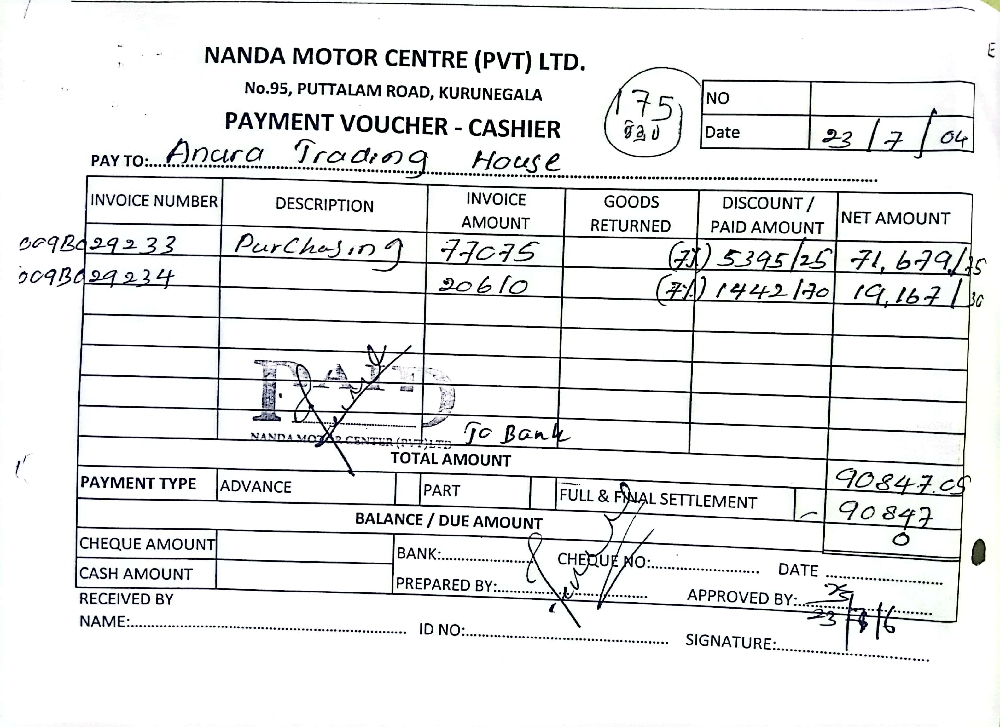 NANDA MOTOR CENTRE (PVT) LTD.
No.95, PUTTALAM ROAD, KURUNEGALA
PAYMENT VOUCHER - CASHIER
175
NO
Date 23/7/04
PAY TO: Anura Trading House
INVOICE NUMBER DESCRIPTION INVOICE AMOUNT GOODS RETURNED DISCOUNT / PAID AMOUNT NET AMOUNT
009B029233 Purchasing 77075 (7%) 5395/25 71,679/75
009B029234 20610 (7%) 1442/70 19,167/30
PAID
NANDA MOTOR CENTER (PVT) LTD
To Bank
TOTAL AMOUNT 90847.05
PAYMENT TYPE ADVANCE PART FULL & FINAL SETTLEMENT - 90847
BALANCE / DUE AMOUNT 0
CHEQUE AMOUNT BANK: CHEQUE NO: DATE
CASH AMOUNT PREPARED BY: APPROVED BY:
RECEIVED BY
NAME: ID NO: SIGNATURE: